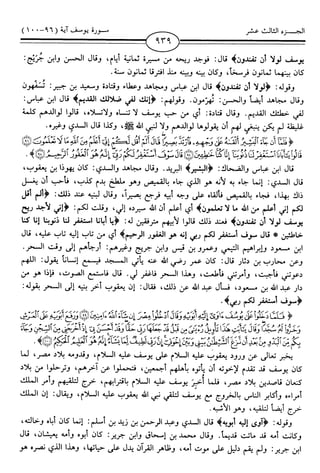 الجزء الثالث عشر
٩٣٩
سورة يوسف آية (٩٦-١٠٠)
يوسف لولا أن تفندون﴾ قال: فوجد ريحه من مسيرة ثمانية أيام، وقال الحسن وابن جريج:
كان بينهما ثمانون فرسخاً، وكان بينه وبينه منذ افترقا ثمانون سنة.
وقوله: ﴿لولا أن تفندون﴾ قال ابن عباس ومجاهد وعطاء وقتادة وسعيد بن جبير: تُسَفِّهون
وقال مجاهد أيضاً والحسن: تُهرِّمون. وقولهم: ﴿إنك لفي ضلالك القديم﴾ قال ابن عباس:
لفي خطئك القديم. وقال قتادة: أي من حب يوسف لا تنساه ولاتسلاه، قالوا لوالدهم كلمة
غليظة لم يكن ينبغي لهم أن يقولوها لوالدهم ولا لنبي الله ﷺ، وكذا قال السدي وغيره.
﴿فَلَمَّا أَن جَاءَ الْبَشِيرُ أَلْقَاهُ عَلَى وَجْهِهِ فَارْتَدَّ بَصِيرًا قَالَ أَلَمْ أَقُل لَّكُمْ إِنِّي أَعْلَمُ مِنَ اللَّهِ مَا لَا تَعْلَمُونَ
قَالُوا يَا أَبَانَا اسْتَغْفِرْ لَنَا ذُنُوبَنَا إِنَّا كُنَّا خَاطِئِينَ قَالَ سَوْفَ أَسْتَغْفِرُ لَكُمْ رَبِّي إِنَّهُ هُوَ الْغَفُورُ الرَّحِيمُ﴾
قال ابن عباس والضحاك: ﴿البشير﴾ البريد. وقال مجاهد والسدي: كان يهوذا بن يعقوب،
قال السدي: إنما جاء به لأنه هو الذي جاء بالقميص وهو ملطخ بدم كذب، فأحب أن يغسل
ذاك بهذا، فجاء بالقميص فألقاه على وجه أبيه فرجع بصيراً، وقال لبنيه عند ذلك: ﴿ألم أقل
لكم إني أعلم من الله ما لا تعلمون﴾ أي أعلم أن الله سيرده إلي، وقلت لكم: ﴿إني لأجد ريح
يوسف لولا أن تفندون﴾ فعند ذلك قالوا لأبيهم مترفقين له: ﴿يا أبانا استغفر لنا ذنوبنا إنا كنا
خاطئين * قال سوف أستغفر لكم ربي إنه هو الغفور الرحيم﴾ أي من تاب إليه تاب عليه، قال
ابن مسعود وإبراهيم التيمي وعمرو بن قيس وابن جريج وغيرهم: أرجأهم إلى وقت السحر.
وعن محارب بن دثار قال: كان عمر رضي الله عنه يأتي المسجد فيسمع إنساناً يقول: اللهم
دعوتني فأجبت، وأمرتني فأطعت، وهذا السحر فاغفر لي. قال فاستمع الصوت، فإذا هو من
دار عبد الله بن مسعود، فسأل عبد الله عن ذلك، فقال: إن يعقوب أخر بنيه إلى السحر بقوله:
﴿سوف أستغفر لكم ربي﴾.
﴿فَلَمَّا دَخَلُوا عَلَى يُوسُفَ آوَى إِلَيْهِ أَبَوَيْهِ وَقَالَ ادْخُلُوا مِصْرَ إِن شَاءَ اللَّهُ آمِنِينَ وَرَفَعَ أَبَوَيْهِ عَلَى الْعَرْشِ
وَخَرُّوا لَهُ سُجَّدًا وَقَالَ يَا أَبَتِ هَذَا تَأْوِيلُ رُؤْيَايَ مِن قَبْلُ قَدْ جَعَلَهَا رَبِّي حَقًّا وَقَدْ أَحْسَنَ بِي إِذْ أَخْرَجَنِي مِنَ السِّجْنِ وَجَاءَ
بِكُم مِّنَ الْبَدْوِ مِن بَعْدِ أَن نَّزَغَ الشَّيْطَانُ بَيْنِي وَبَيْنَ إِخْوَتِي إِنَّ رَبِّي لَطِيفٌ لِّمَا يَشَاءُ إِنَّهُ هُوَ الْعَلِيمُ الْحَكِيمُ﴾
يخبر تعالى عن ورود يعقوب عليه السلام على يوسف عليه السلام، وقدومه بلاد مصر، لما
كان يوسف قد تقدم لإخوته أن يأتوه بأهلهم أجمعين، فتحملوا عن آخرهم، وترحلوا من بلاد
كنعان قاصدين بلاد مصر، فلما أخبر يوسف عليه السلام باقترابهم، خرج لتلقيهم وأمر الملك
أمراءه وأكابر الناس بالخروج مع يوسف لتلقي نبي الله يعقوب عليه السلام، ويقال: إن الملك
خرج أيضاً لتلقيه، وهو الأشبه.
وقوله: ﴿آوى إليه أبويه﴾ قال السدي وعبد الرحمن بن زيد بن أسلم: إنما كان أباه وخالته،
وكانت أمه قد ماتت قديماً. وقال محمد بن إسحاق وابن جرير: كان أبوه وأمه يعيشان، قال
ابن جرير: ولم يقم دليل على موت أمه، وظاهر القرآن يدل على حياتها، وهذا الذي نصره هو